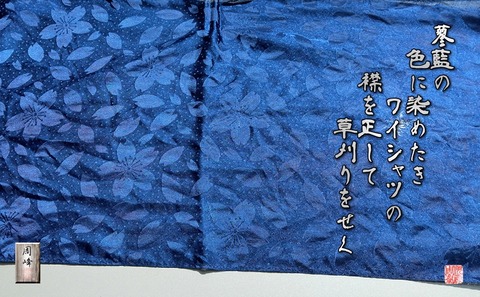 蓼藍の
色に染めたき
ワイシャツの
襟を正して
草刈りをせく
周峰